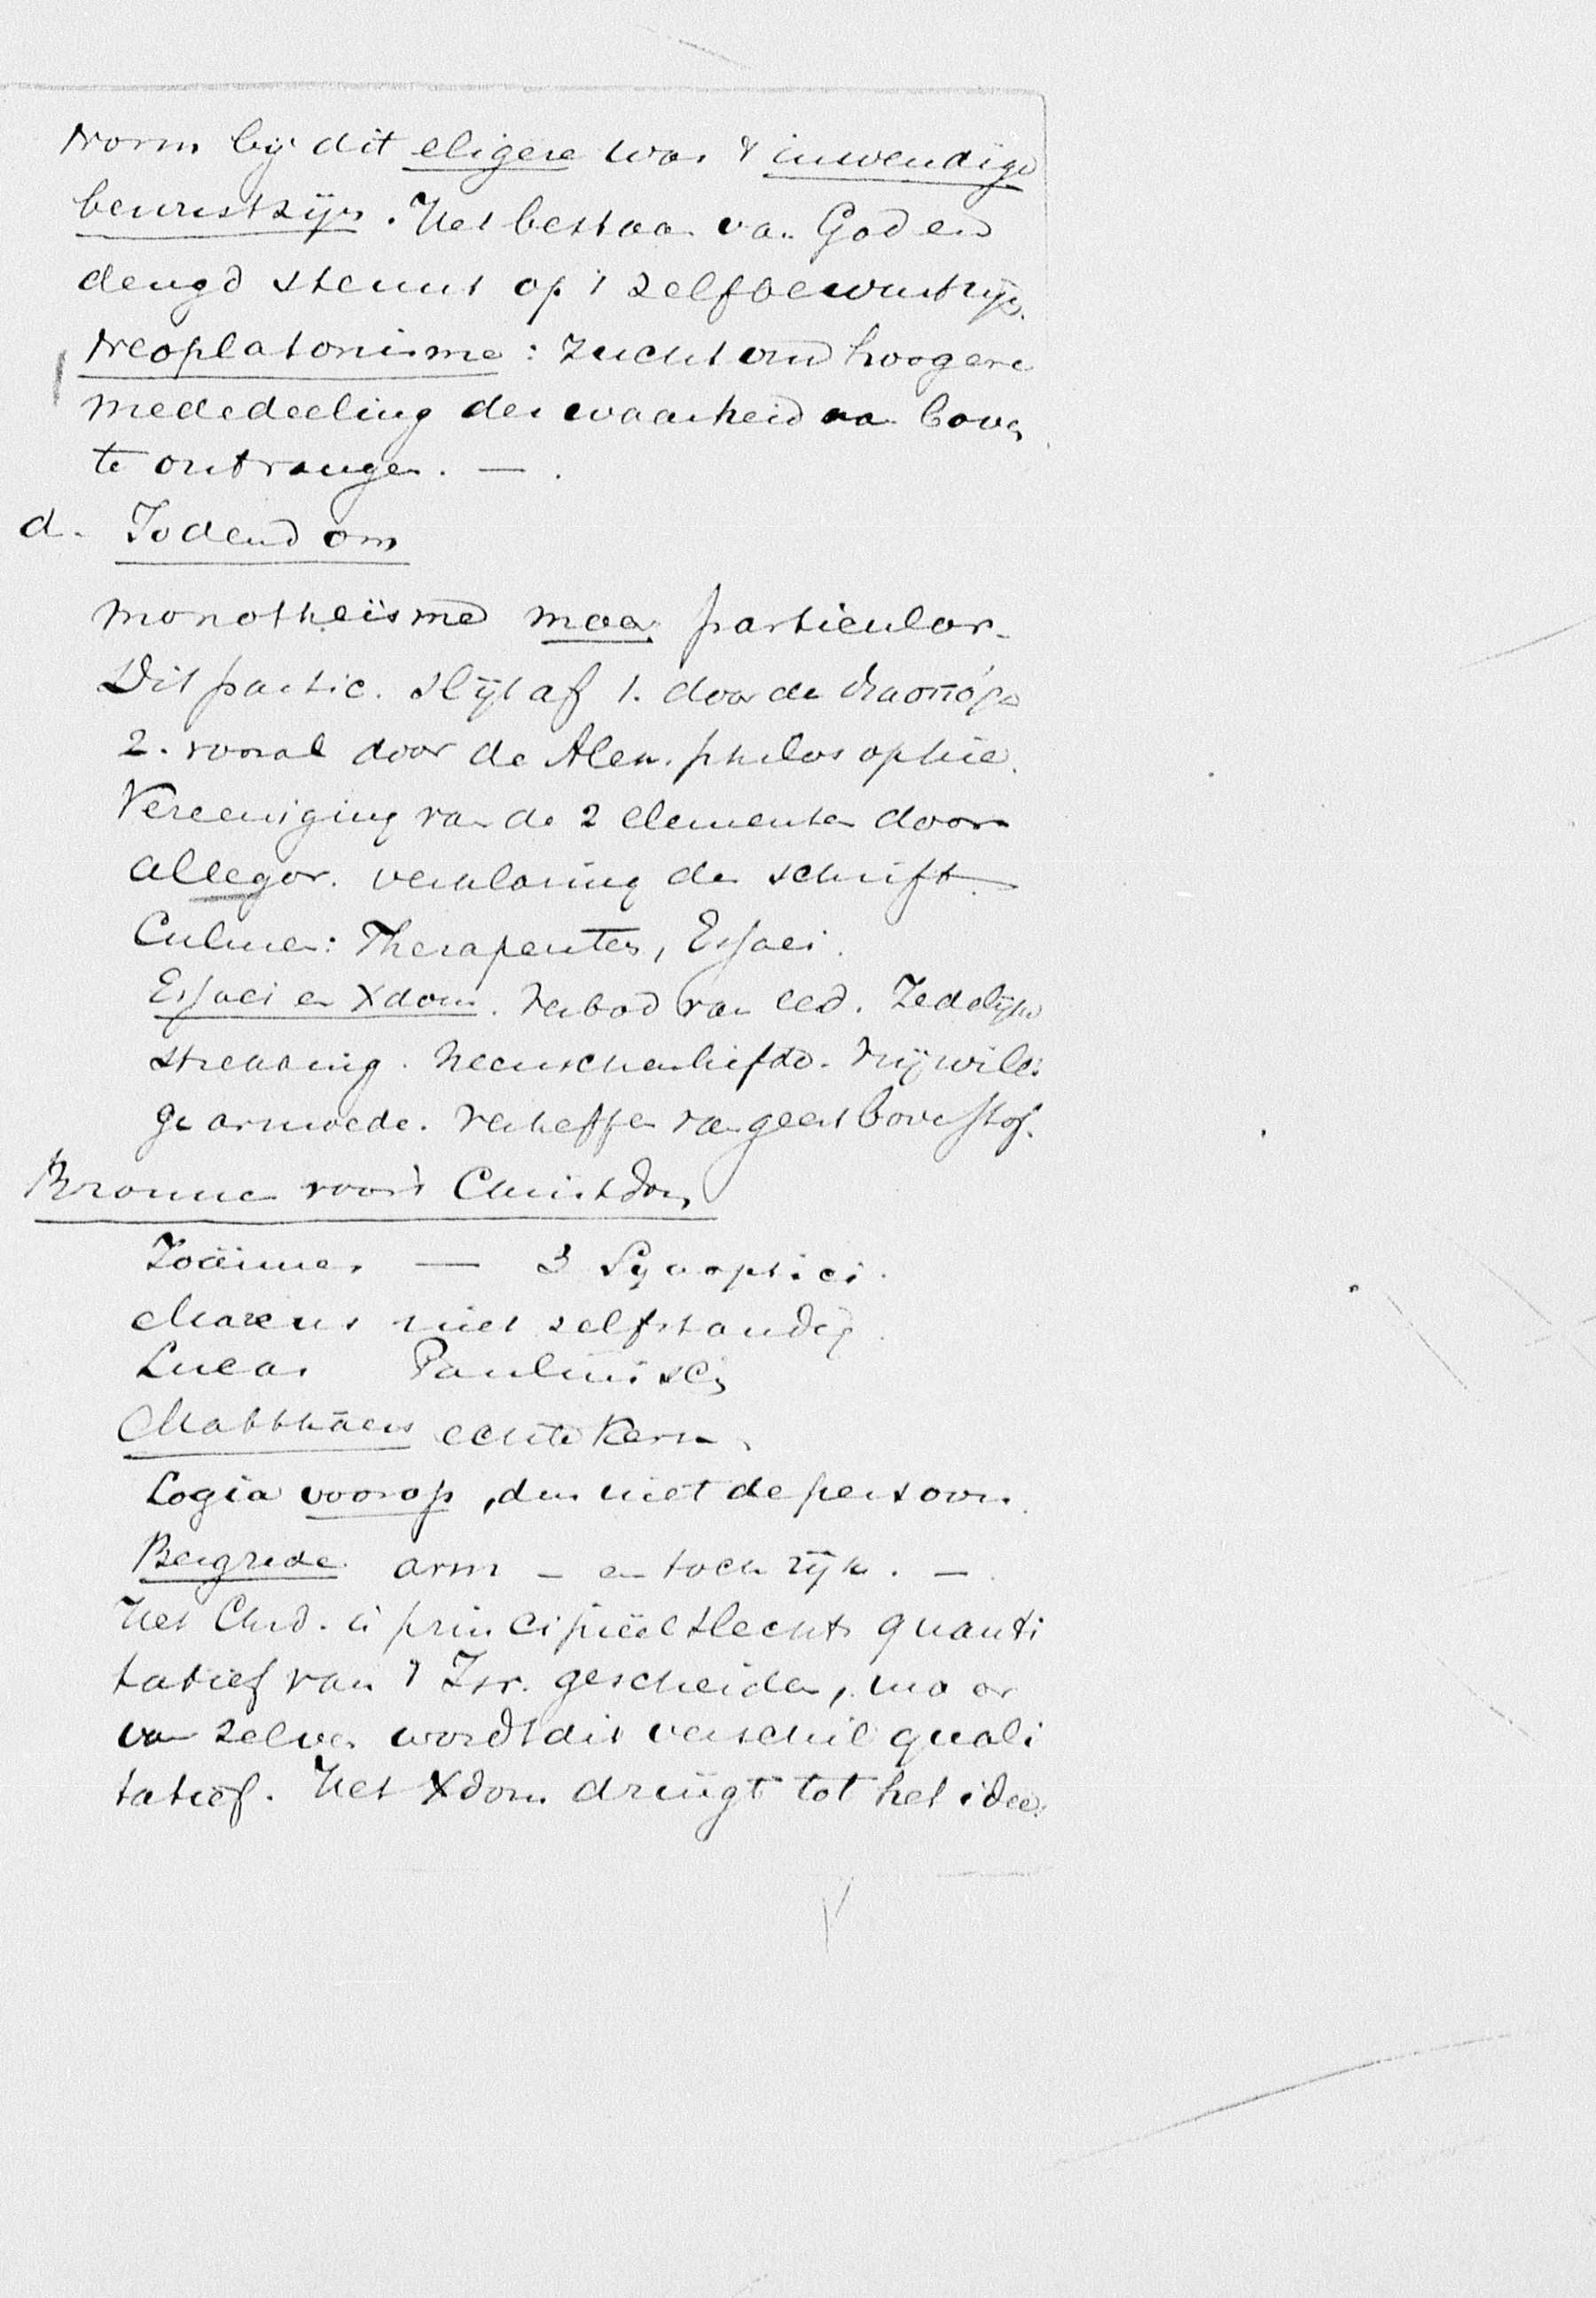 Norm bij dit eligere was 't inwendige
bewustzijn. Het bestaan van God en
deugd steunt op 't zelfbewustzijn.
Neoplatonisme: zucht om hoogere
mededeeling der waarheid van boven
te ontvangen. — .
d. Jodendom
Monotheïsme maar particular.
Dit partic. slijt af 1. door de διασπορα
2. vooral door de Alex. philosophie.
Vereeniging van de 2 elementen door
allegor. verklaring der schrift.
Culmen: Therapeuten, Essaei.
Essaei en Xdom. Verbod van eed. Zedelijke
strekking. Menschenliefde. Vrijwilli
ge armoede. Verheffen van geest boven stof.
Bronnen voor 't Christdom
Joännes — 3 Synoptici.
Marcus niet zelfstandig.
Lucas Paulinisch
Matthäus echte Kern.
Logia voorop, dus niet de persoon.
Bergrede arm – en toch rijk. —
Het Chrd. is principiëel slechts quanti
tatief van 't Isr. gescheiden, maar
van zelven wordt dit verschil quali
tatief. Het Xdom dringt tot het idee: